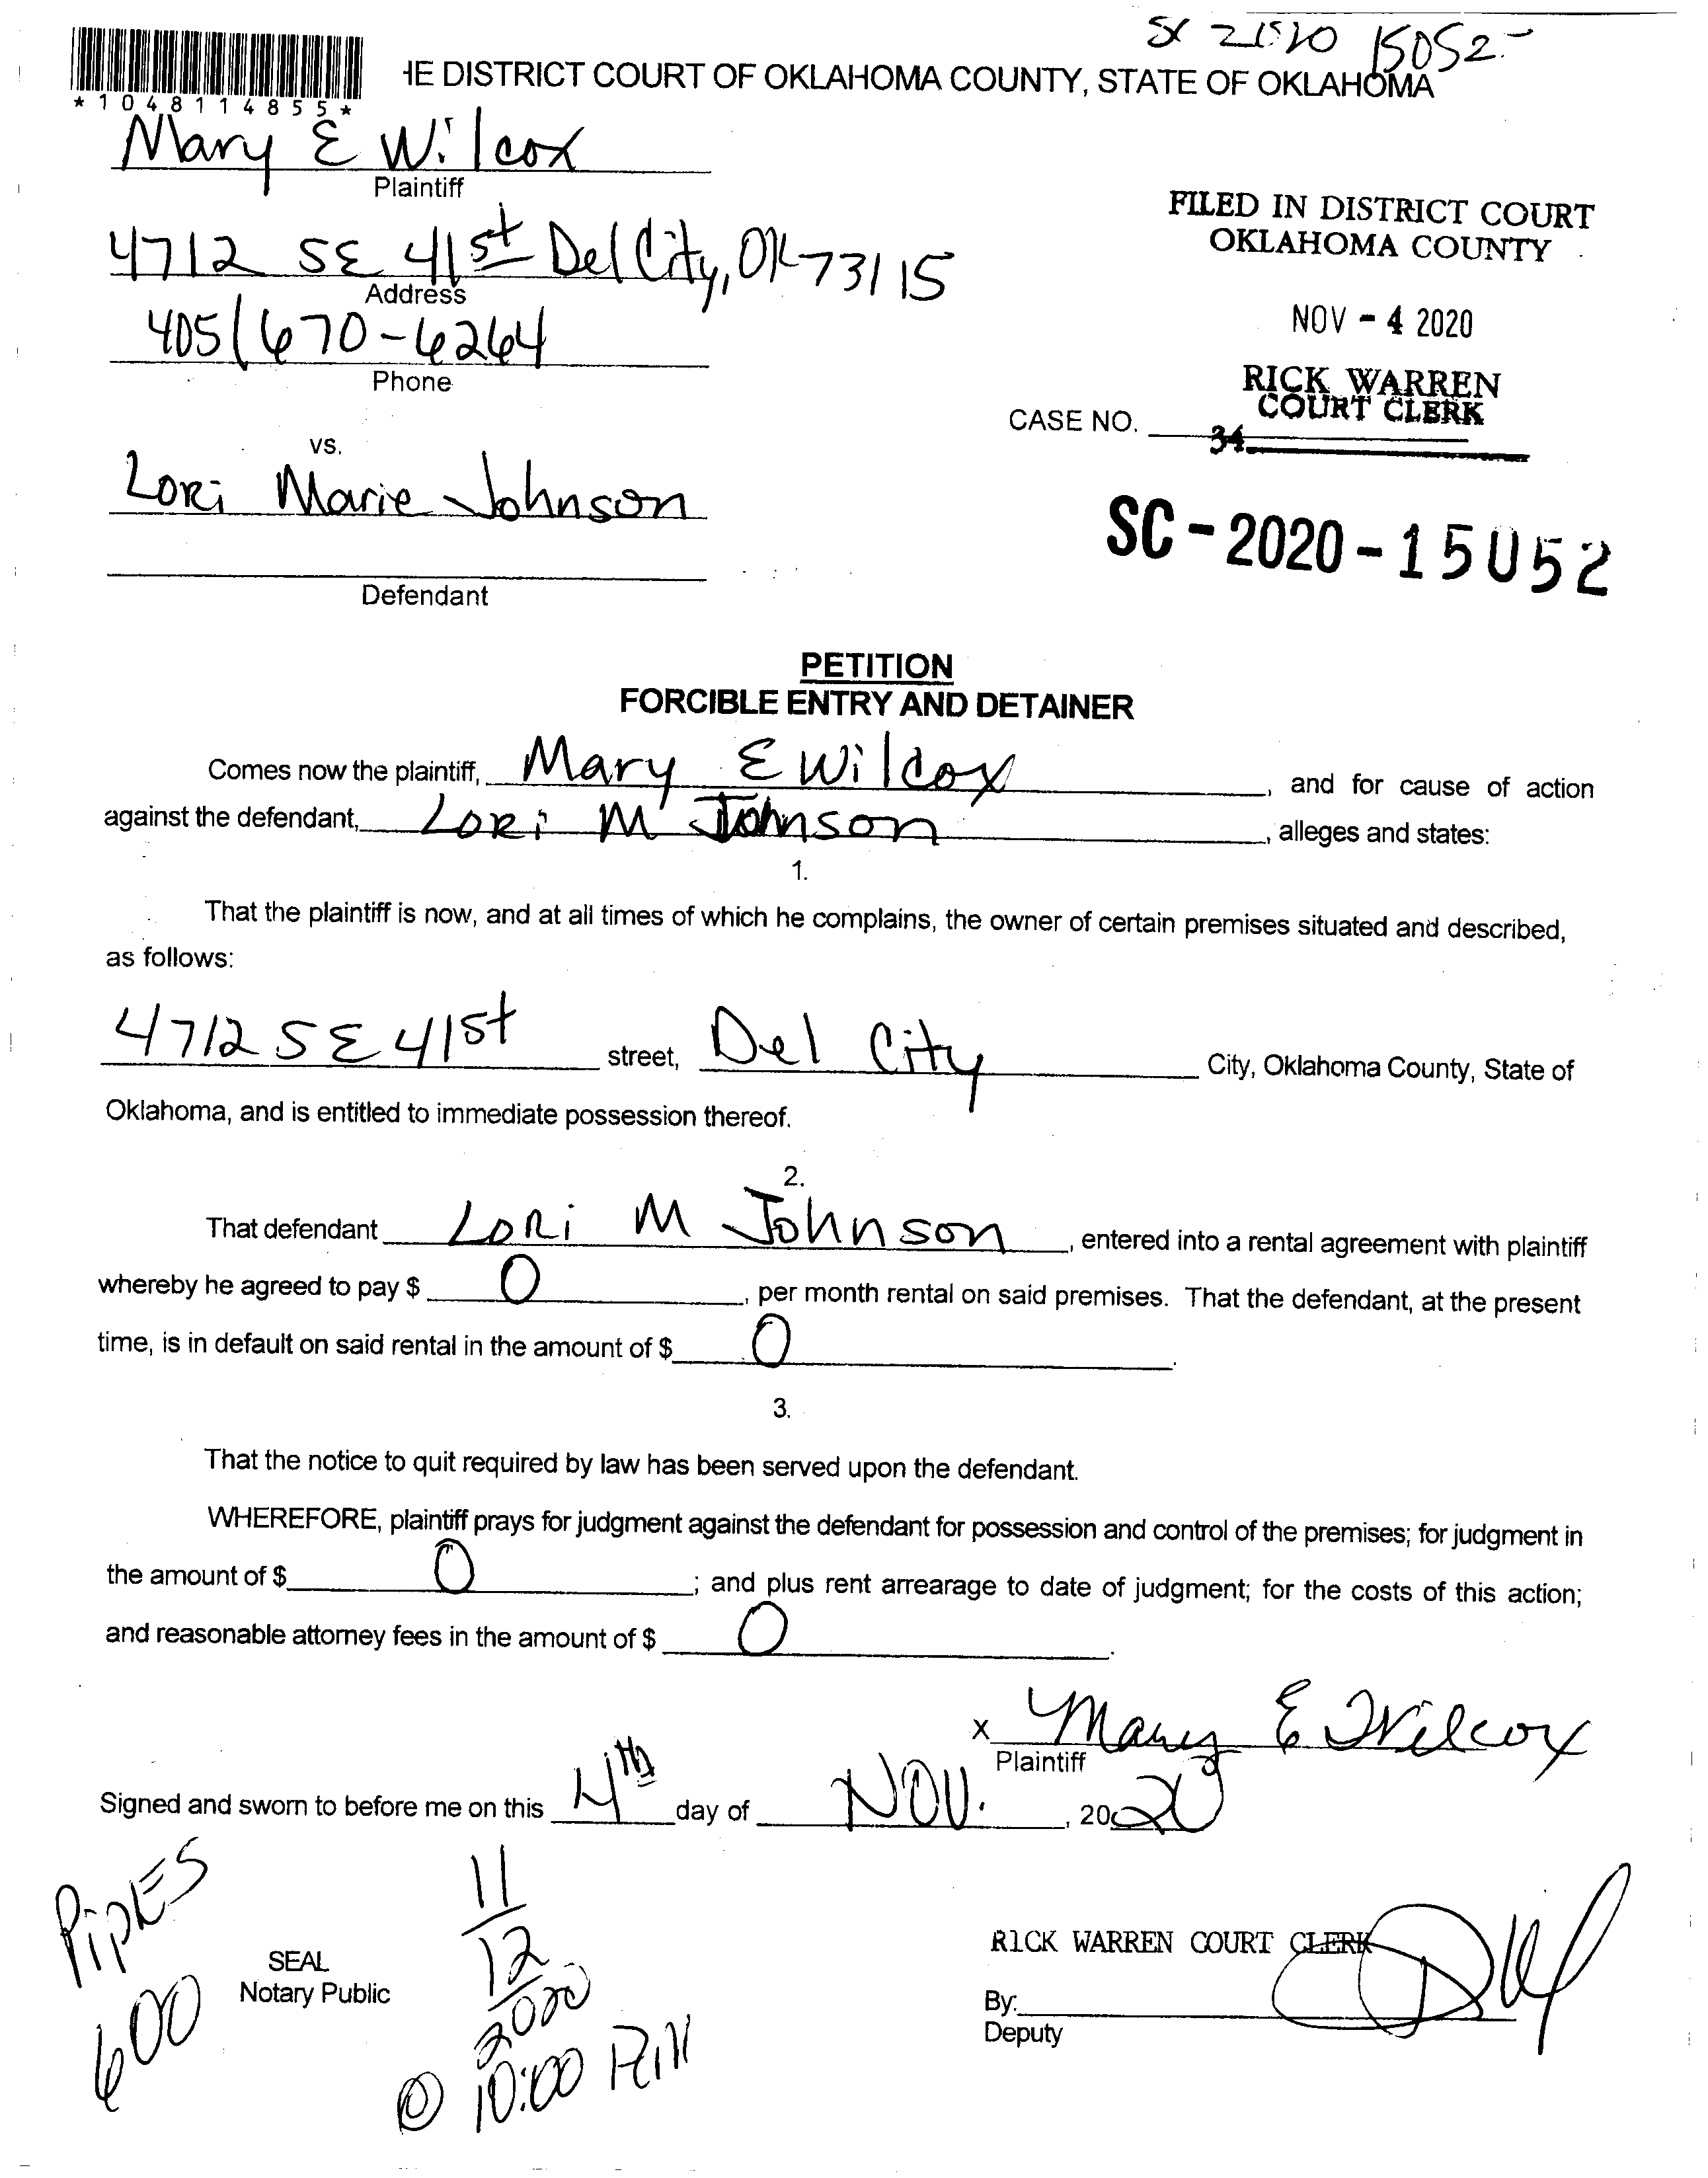 SC 2020 15052-
*1048114855*
HE DISTRICT COURT OF OKLAHOMA COUNTY, STATE OF OKLAHOMA
Mary E Wilcox
Plaintiff
4712 SE 41st Del City, OK 73115
Address
405/670-6264
Phone
FILED IN DISTRICT COURT
OKLAHOMA COUNTY
NOV - 4 2020
RICK WARREN
COURT CLERK
CASE NO.
34
vs.
Lori Marie Johnson
Defendant
SC - 2020 - 15052
PETITION
FORCIBLE ENTRY AND DETAINER
Comes now the plaintiff, Mary E Wilcox, and for cause of action
against the defendant, Lori M Johnson, alleges and states:
1.
That the plaintiff is now, and at all times of which he complains, the owner of certain premises situated and described,
as follows:
4712 SE 41st street, Del City City, Oklahoma County, State of
Oklahoma, and is entitled to immediate possession thereof.
2.
That defendant Lori M Johnson, entered into a rental agreement with plaintiff
whereby he agreed to pay $ 0, per month rental on said premises. That the defendant, at the present
time, is in default on said rental in the amount of $ 0.
3.
That the notice to quit required by law has been served upon the defendant.
WHEREFORE, plaintiff prays for judgment against the defendant for possession and control of the premises; for judgment in
the amount of $ 0; and plus rent arrearage to date of judgment; for the costs of this action;
and reasonable attorney fees in the amount of $ 0.
x Mary E Wilcox
Plaintiff
Signed and sworn to before me on this 4th day of NOV., 2020
PIPES
600
SEAL
Notary Public
11
12
2020
@ 10:00
RICK WARREN COURT CLERK
By:
Deputy